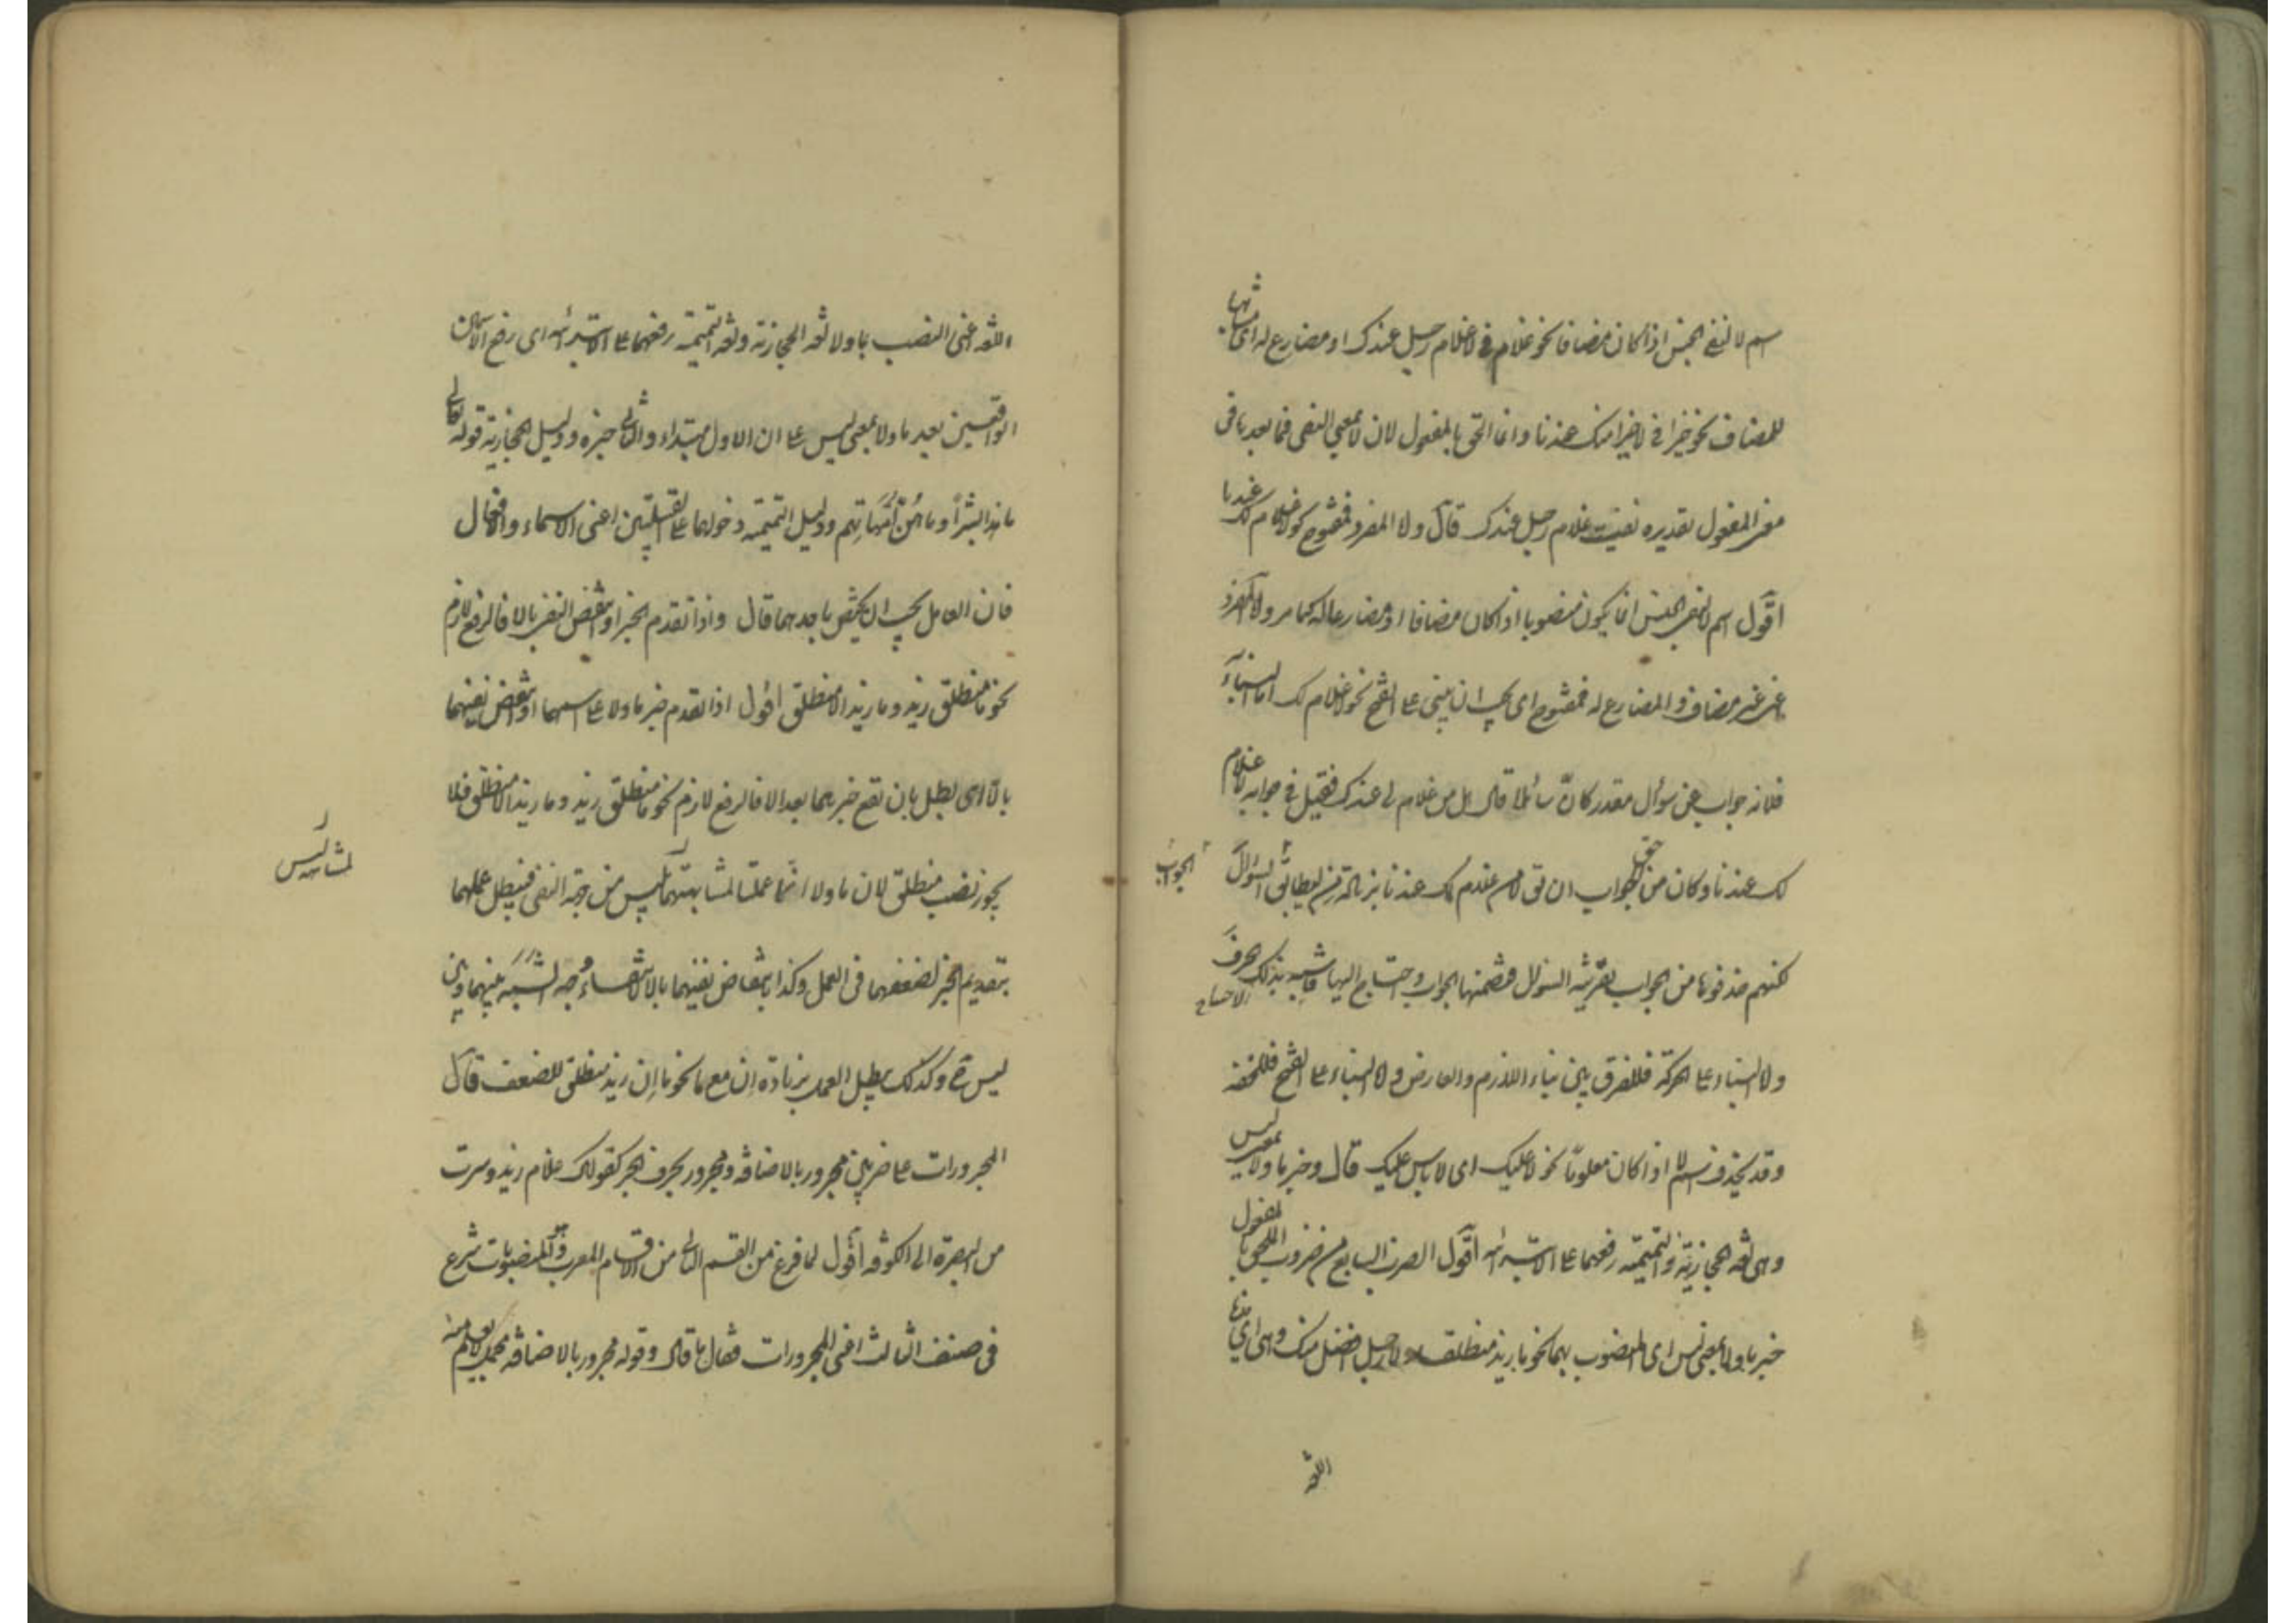 اسم لا لنفى الجنس اذا كان مضافا نحو غلام فى لا غلام رجل عندك او مضارع له اى مشابها
للمضاف نحو خيرا فى لا خيرا منك عندنا وانما التحق بالمفعول لان لا بمعنى النفى فما بعدها فى
معنى المفعول تقديره نفيت غلام رجل عندك قال ولا المفرد فمفتوح نحو لا غلام لك عندنا
اقول اسم لا لنفى الجنس انما يكون منصوبا اذا كان مضافا او مضارعا له كما مر ولا المفرد
اعنى غير مضاف والمضارع له فمفتوح اى يجب ان يبنى على الفتح نحو لا غلام لك اما البناء
فلانه جواب عن سؤال مقدر كانّ سائلا قال هل من غلام لى عندك فقيل فى جوابه لا غلام
لك عندنا وكان من حق الجواب ان يق لا من غلام لك عندنا بزيادة من ليطابق السؤال
الجواب
لكنهم حذفوها من الجواب بقرينة السؤال فتضمنها الجواب واحتاج اليها فاشبه بذلك الحرف
الاحتياج
ولا البناء على الحركة فللفرق بين بناء اللازم والعارض ولا البناء على الفتح فللخفة
وقد يحذف اسم لا اذا كان معلوما نحو لا عليك اى لا باس عليك قال وخبر ما ولا بمعنى ليس
وهى لغة الحجازية والتميمية رفعهما على الابتداء اقول الضرب السابع من ضروب الملحق بالمفعول
خبر ما ولا بمعنى ليس اى المنصوب بهما نحو ما زيد منطلقا ولا رجل افضل منك وهى اى هذه
اللغة
اللغة اعنى النصب بما ولا لغة الحجازية ولغة التميمية رفعهما على الابتداء اى رفع الاسمين
الواقعين بعد ما ولا بمعنى ليس على ان الاول مبتداء والثانى خبره ودليل الحجازية قوله تعالى
ما هذا بشراً وما هُنَّ اُمَّهاتِهِم ودليل التميمية دخولهما على القبيلتين اعنى الاسماء والافعال
فان العامل يجب ان يختص باحدهما قال واذا تقدم الخبر او انتقض النفى بالا فالرفع لازم
نحو ما منطلق زيد وما زيد الا منطلق اقول اذا تقدم خبر ما ولا على اسمهما او انتقض نفيهما
بالا اى بطل بان تقع خبرهما بعد الا فالرفع لازم نحو ما منطلق زيد وما زيد الا منطلق فلا
يجوز نصب منطلق لان ما ولا انما عملتا لمشابهتهما بليس من جهة النفى فيبطل عملهما
لمشابهة ليس
بتقديم الخبر لضعفهما فى العمل وكذا بانتقاض نفيهما بالا لانتفاء وجه الشبه بينهما وبين
ليس ح وكذلك يبطل العمل بزيادة اِن مع ما نحو ما اِن زيد منطلق للضعف قال
المجرورات على ضربين مجرور بالاضافة ومجرور بحرف الجر كقولك غلام زيد وسرت
من البصرة الى الكوفة اقول لما فرغ من القسم الثانى من اقسام المعرب والمنصوبات شرع
فى صنف الثالث اعنى المجرورات فقال ما قال وقوله مجرور بالاضافة